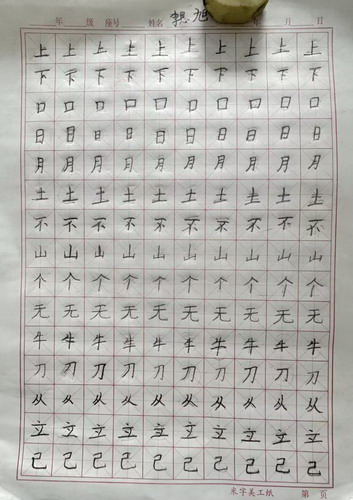 年 级 座号 姓名 旭 年 月 日
上 上 上 上 上 上 上 上 上 上
下 下 下 下 下 下 下 下 下 下
口 口 口 口 口 口 口 口 口 口
日 日 日 日 日 日 日 日 日 日
月 月 月 月 月 月 月 月 月 月
土 土 土 土 土 土 土 土 土 土
不 不 不 不 不 不 不 不 不 不
山 山 山 山 山 山 山 山 山 山
个 个 个 个 个 个 个 个 个 个
无 无 无 无 无 无 无 无 无 无
牛 牛 牛 牛 牛 牛 牛 牛 牛 牛
刀 刀 刀 刀 刀 刀 刀 刀 刀 刀
从 从 从 从 从 从 从 从 从 从
立 立 立 立 立 立 立 立 立 立
己 己 己 己 己 己 己 己 己 己
米字美工纸 第 页